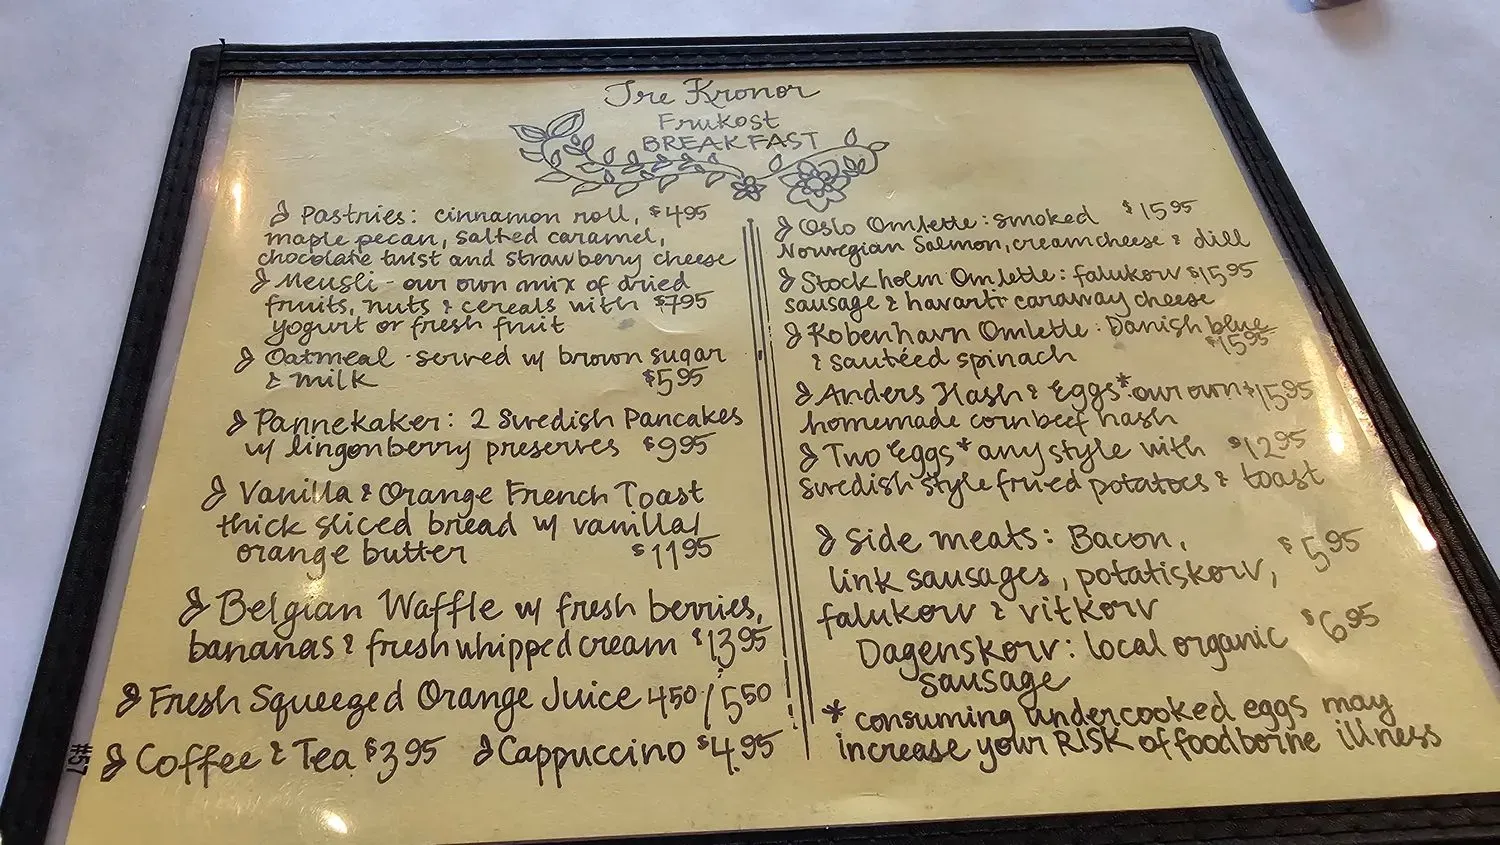 Tre Kronor
Frukost
BREAKFAST
Pastries: cinnamon roll, $4.95
maple pecan, salted caramel,
chocolate twist and strawberry cheese
Meusli - our own mix of dried
fruits, nuts & cereals with $7.95
yogurt or fresh fruit
Oatmeal - served w/ brown sugar
& milk $5.95
Pannekaker: 2 Swedish Pancakes
w/ lingonberry preserves $9.95
Vanilla & Orange French Toast
thick sliced bread w/ vanilla/
orange butter $11.95
Belgian Waffle w/ fresh berries,
bananas & fresh whipped cream $13.95
Fresh Squeezed Orange Juice 4.50/5.50
Coffee & Tea $3.95 Cappuccino $4.95
#57
Oslo Omlette: smoked $15.95
Norwegian Salmon, cream cheese & dill
Stockholm Omlette: falukorv $15.95
sausage & havarti caraway cheese
Kobenhavn Omlette: Danish blue
& sautéed spinach $15.95
Anders Hash & Eggs* our own $15.95
homemade corn beef hash
Two eggs* any style with $12.95
Swedish style fried potatoes & toast
Side meats: Bacon, $5.95
link sausages, potatiskorv,
falukorv & vitkorv
Dagenskorv: local organic $6.95
sausage
* consuming undercooked eggs may
increase your RISK of foodborne illness